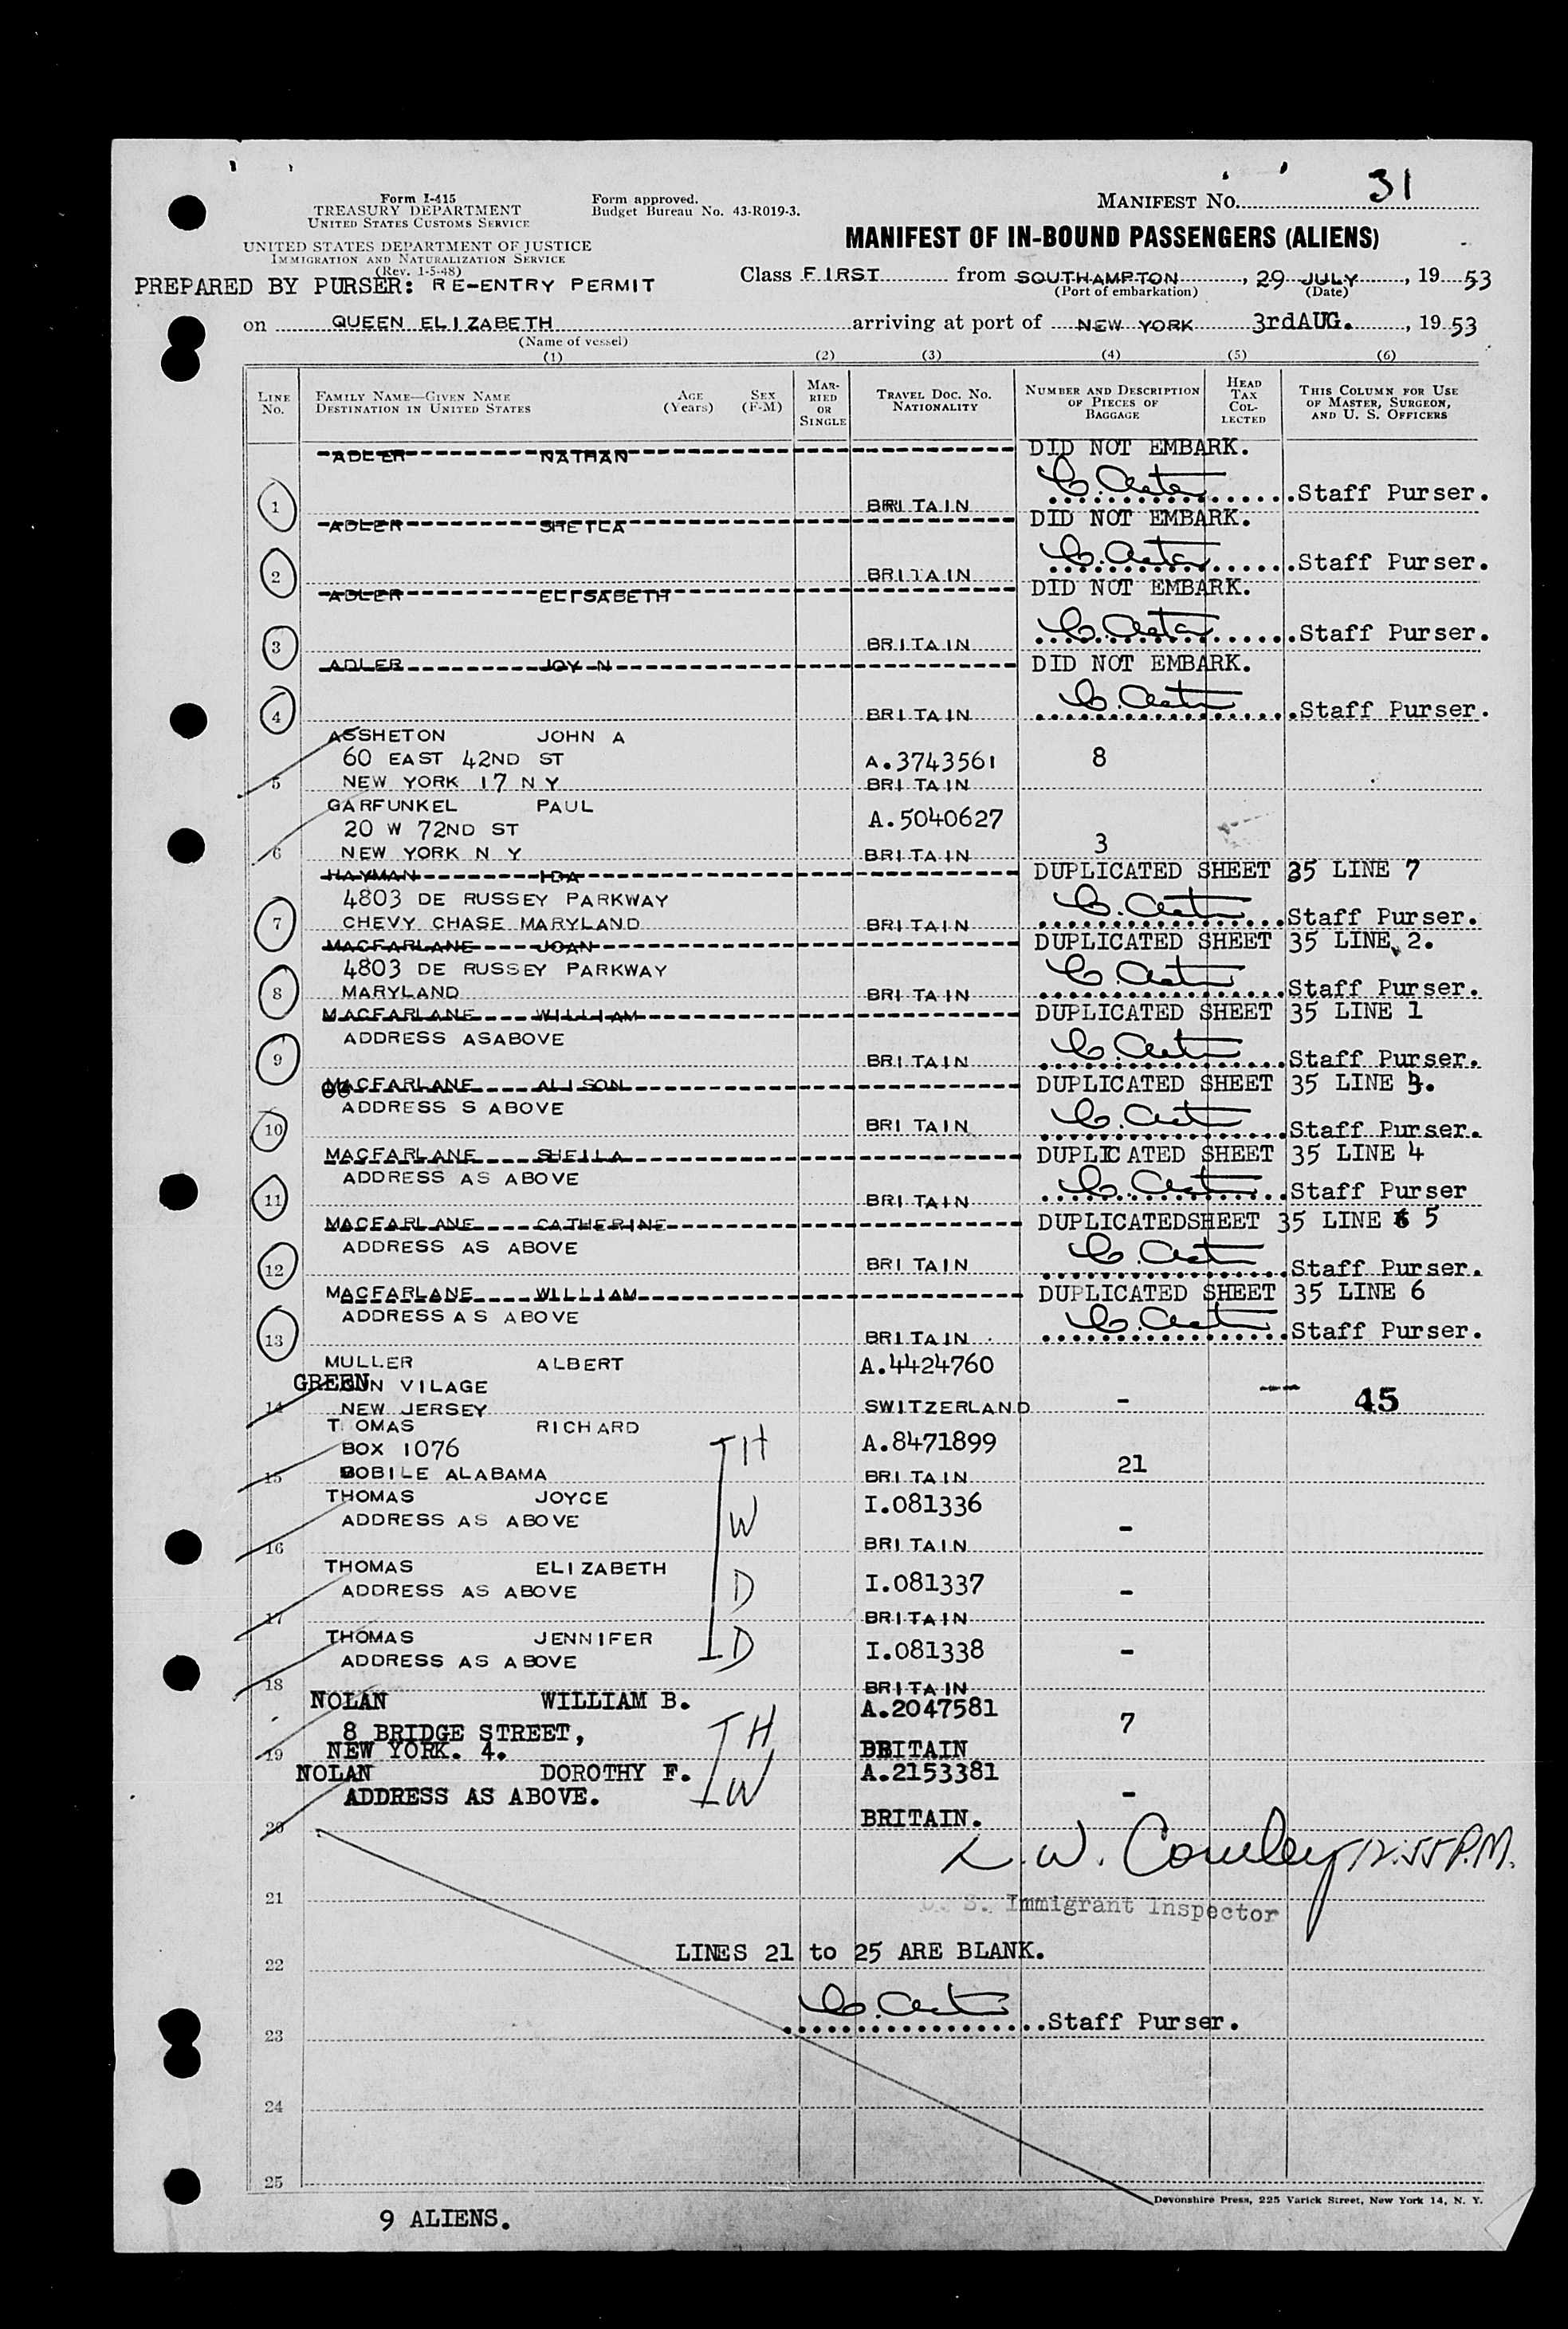 31
Form I-415
TREASURY DEPARTMENT
UNITED STATES CUSTOMS SERVICE
Form approved.
Budget Bureau No. 43-R019-3.
MANIFEST NO.
UNITED STATES DEPARTMENT OF JUSTICE
IMMIGRATION AND NATURALIZATION SERVICE
(Rev. 1-5-48)
MANIFEST OF IN-BOUND PASSENGERS (ALIENS)
PREPARED BY PURSER: RE-ENTRY PERMIT
Class FIRST from SOUTHAMPTON, 29 JULY, 19 53
(Port of embarkation) (Date)
on QUEEN ELIZABETH arriving at port of NEW YORK 3rdAUG., 19 53
(Name of vessel)
(1) (2) (3) (4) (5) (6)
LINE NO. FAMILY NAME—GIVEN NAME DESTINATION IN UNITED STATES AGE (Years) SEX (F-M) MARRIED OR SINGLE TRAVEL DOC. NO. NATIONALITY NUMBER AND DESCRIPTION OF PIECES OF BAGGAGE HEAD TAX COLLECTED THIS COLUMN FOR USE OF MASTER, SURGEON, AND U. S. OFFICERS
ADLER NATHAN DID NOT EMBARK.
1 BRITAIN Staff Purser.
ADLER SHEILA DID NOT EMBARK.
2 BRITAIN Staff Purser.
ADLER ELISABETH DID NOT EMBARK.
3 BRITAIN Staff Purser.
ADLER JOY N DID NOT EMBARK.
4 BRITAIN Staff Purser.
ASSHETON JOHN A
60 EAST 42ND ST A.3743561 8
5 NEW YORK 17 N Y BRITAIN
GARFUNKEL PAUL
20 W 72ND ST A.5040627
6 NEW YORK N Y BRITAIN 3
HAYMAN IDA DUPLICATED SHEET 35 LINE 7
4803 DE RUSSEY PARKWAY
7 CHEVY CHASE MARYLAND BRITAIN Staff Purser.
MACFARLANE JOAN DUPLICATED SHEET 35 LINE 2.
4803 DE RUSSEY PARKWAY
8 MARYLAND BRITAIN Staff Purser.
MACFARLANE WILLIAM DUPLICATED SHEET 35 LINE 1
ADDRESS ASABOVE
9 BRITAIN Staff Purser.
MACFARLANE ALISON DUPLICATED SHEET 35 LINE 3.
ADDRESS S ABOVE
10 BRITAIN Staff Purser.
MACFARLANE SHEILA DUPLICATED SHEET 35 LINE 4
ADDRESS AS ABOVE
11 BRITAIN Staff Purser
MACFARLANE CATHERINE DUPLICATEDSHEET 35 LINE 5
ADDRESS AS ABOVE
12 BRITAIN Staff Purser.
MACFARLANE WILLIAM DUPLICATED SHEET 35 LINE 6
ADDRESS AS ABOVE
13 BRITAIN Staff Purser.
MULLER ALBERT A.4424760
GREEN VILAGE
14 NEW JERSEY SWITZERLAND - 45
T OMAS RICHARD
BOX 1076 H A.8471899
15 MOBILE ALABAMA BRITAIN 21
THOMAS JOYCE I.081336
ADDRESS AS ABOVE W -
16 BRITAIN
THOMAS ELIZABETH I.081337
ADDRESS AS ABOVE D -
17 BRITAIN
THOMAS JENNIFER I.081338
ADDRESS AS ABOVE D -
18 BRITAIN
NOLAN WILLIAM B. A.2047581
8 BRIDGE STREET, H 7
19 NEW YORK. 4. BRITAIN
NOLAN DOROTHY F. A.2153381
ADDRESS AS ABOVE. W -
20 BRITAIN.
L. W. Cowley 12:55 P.M.
21 U. S. Immigrant Inspector
LINES 21 to 25 ARE BLANK.
22
23 Staff Purser.
24
25
Devonshire Press, 225 Varick Street, New York 14, N. Y.
9 ALIENS.